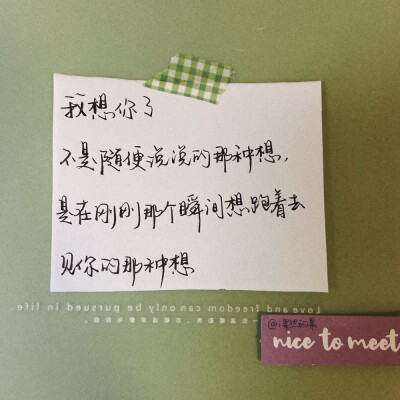 我想你了
不是随便说说的那种想，
是在刚刚那个瞬间想跑着去
见你的那种想
Love and freedom can only be pursued in life.
nice to meet